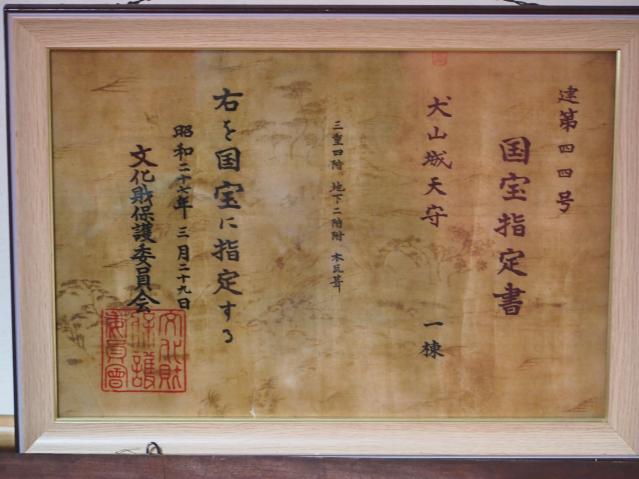 建第四四号
国宝指定書
犬山城天守 一棟
三重四階、地下二階附 本瓦葺
右を国宝に指定する
昭和二十六年三月二十九日
文化財保護委員会
文化財
保護
委員會